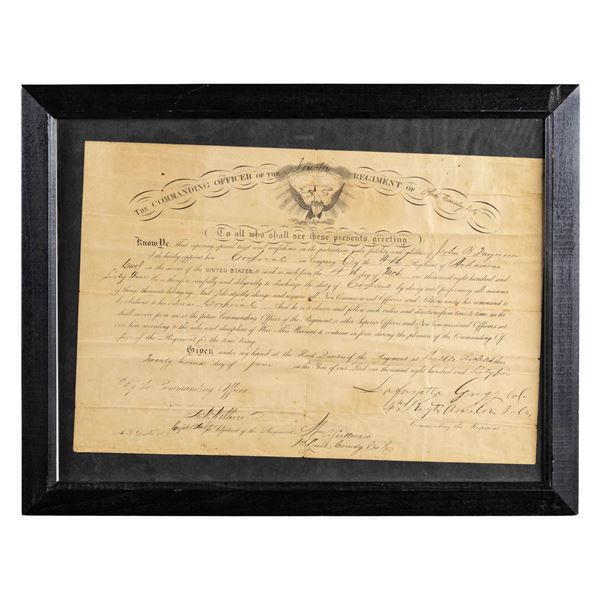 THE COMMANDING OFFICER OF THE Fourth REGIMENT OF
To all who shall see these presents, greeting:
Know Ye, That reposing special trust and confidence in the patriotism, valor, fidelity and abilities of John
I do hereby appoint him Corporal in Company of the 4th Regiment of Arkansas
Cavl in the service of the UNITED STATES, to rank as such from the day of one thousand eight hundred and
Sixty four He is therefore carefully and diligently to discharge the duty of Corporal by doing and performing all manner
of things thereunto belonging. And I do strictly charge and require all Non-Commissioned Officers and Soldiers under his command to
be obedient to his orders as Corporal And he is to observe and follow such orders and directions from time to time, as he
shall receive from me, or the future Commanding Officer of the Regiment, or other Superior Officers and Non-Commissioned Officers set
over him, according to the rules and discipline of War. This Warrant to continue in force during the pleasure of the Commanding Of-
ficer of the Regiment for the time being.
Given under my hand at the Head Quarters of the Regiment, at Little Rock this
Twenty day of June in the Year of our Lord one thousand eight hundred and Sixty five
By the Commanding Officer
Lafayette Gregg Col.
4th Regt
Commanding the Regiment.
Adjutant of the Regiment
1st Lieut Comdg Co